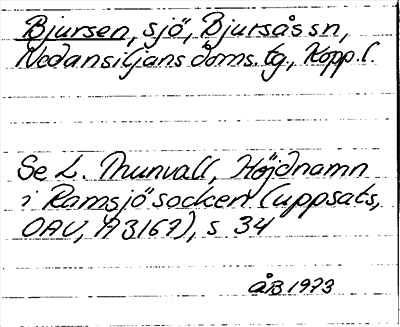 Bjursen, sjö, Bjursås sn,
Nedansiljans doms. tg., Kopp. l.
Se L. Thunvall, Höjdnamn
i Ramsjö socken (uppsats,
OAU, A3167), s 34
ÅB 1973